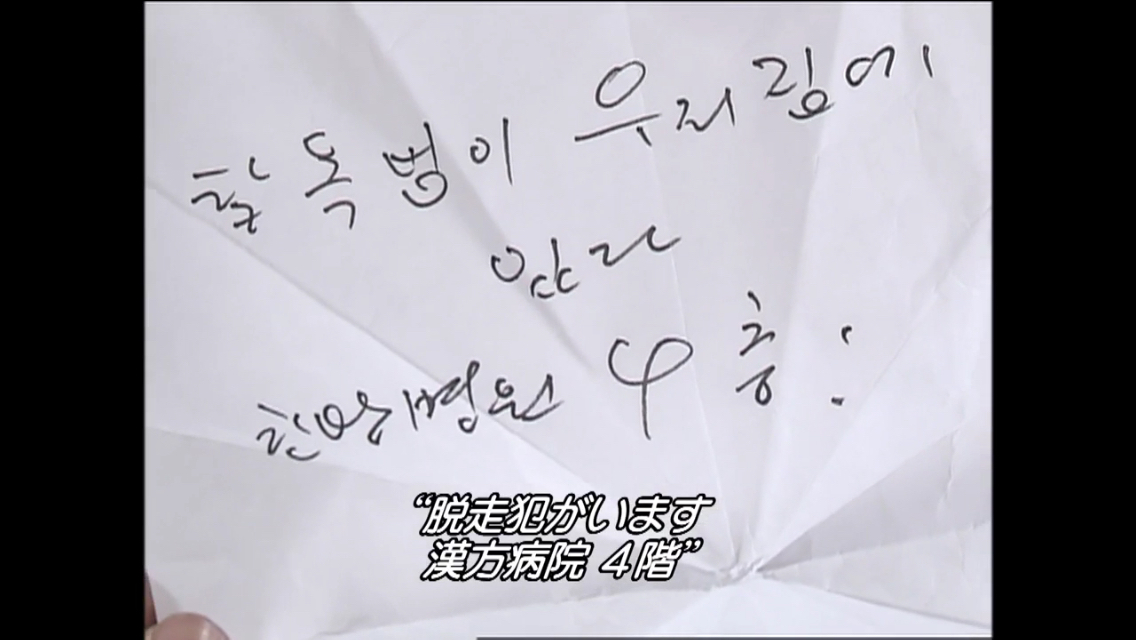 탈옥범이 우리집에
있다
한방병원 4층!
“脱走犯がいます
漢方病院 4階”